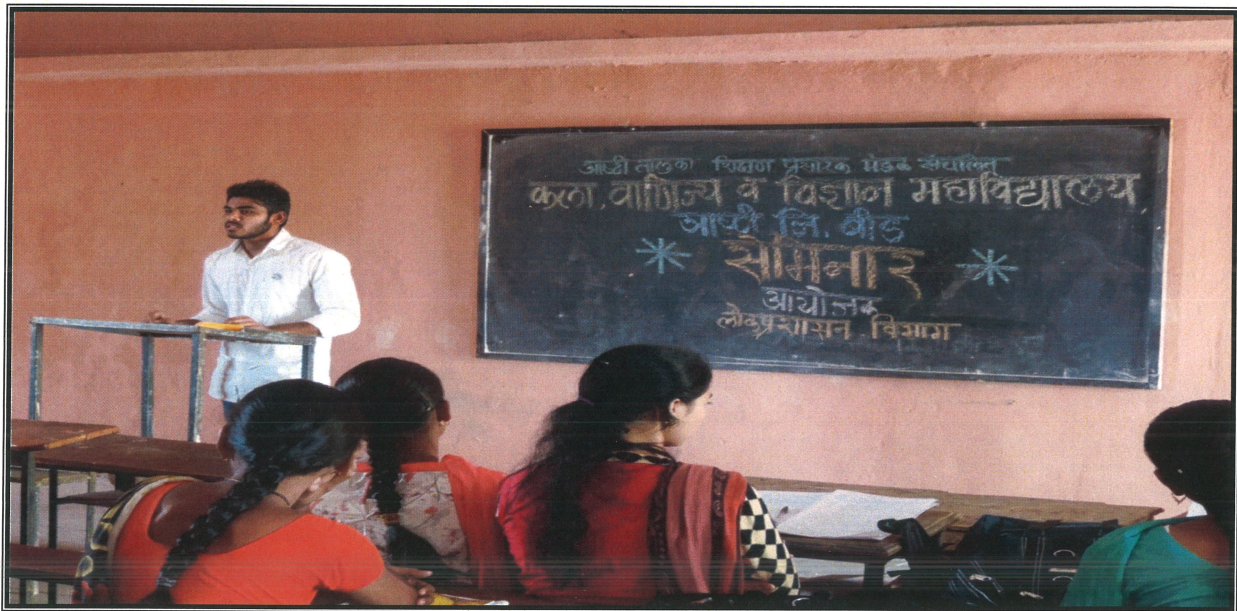 आष्टी तालुका शिक्षण प्रसारक मंडळ संचलित
कला, वाणिज्य व विज्ञान महाविद्यालय
आष्टी जि. बीड
सेमिनार
आयोजक
लोकप्रशासन विभाग